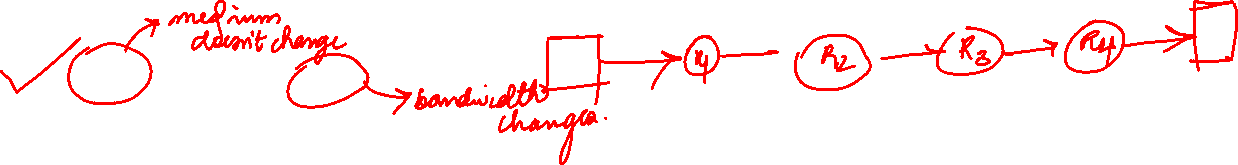 medium
doesn't change
bandwidth
changes.
R1
R2
R3
R4